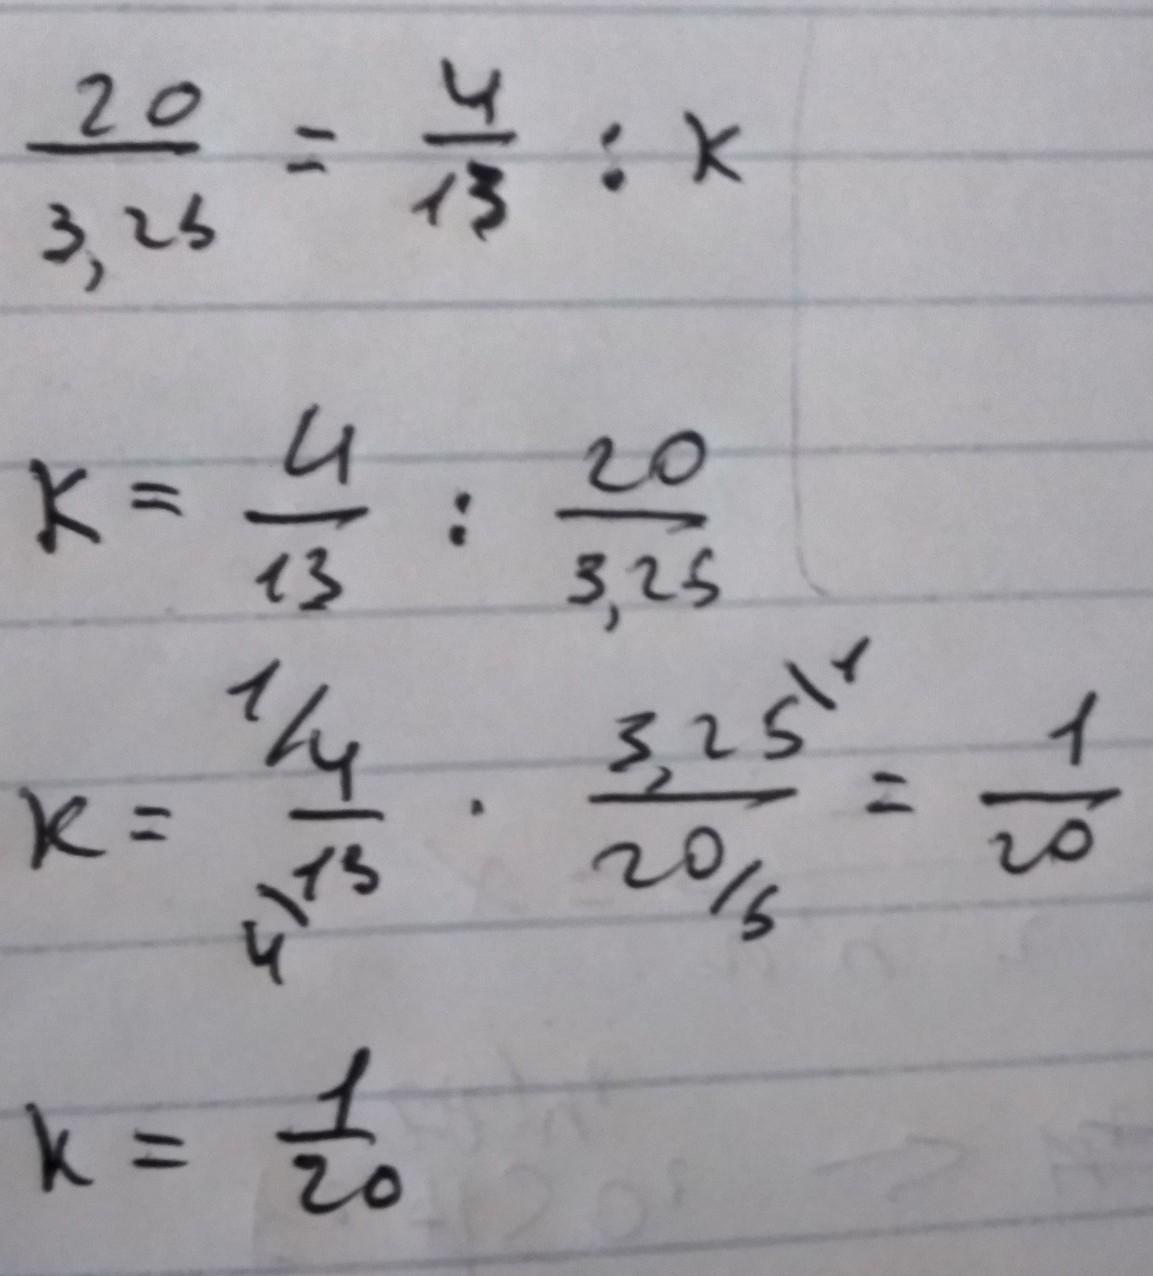 20/3,25 = 4/13 : k
K = 4/13 : 20/3,25
K = 1/4/13\4 · 3,25\1/20/5 = 1/20
k = 1/20